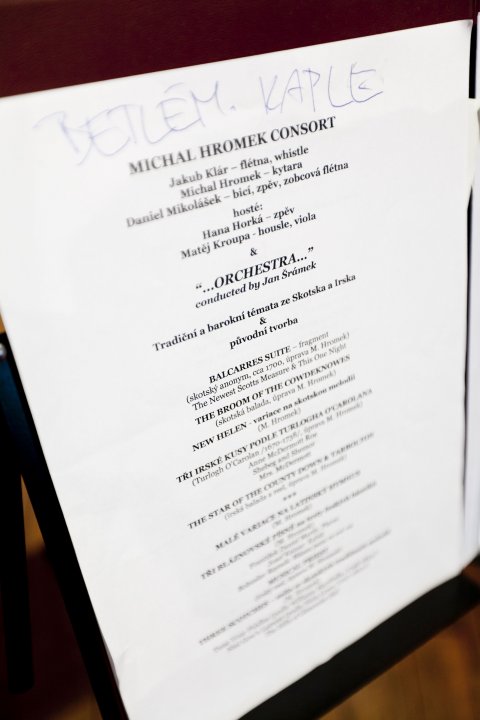 BETLÉM. KAPLE
MICHAL HROMEK CONSORT
Jakub Klár – flétna, whistle
Michal Hromek – kytara
Daniel Mikolášek – bicí, zpěv, zobcová flétna
hosté:
Hana Horká – zpěv
Matěj Kroupa - housle, viola
&
“...ORCHESTRA...”
conducted by Jan Šrámek
Tradiční a barokní témata ze Skotska a Irska
&
původní tvorba
BALCARRES SUITE – fragment
(skotský anonym, cca 1700, úprava M. Hromek)
The Newest Scotts Measure & This One Night
THE BROOM OF THE COWDEKNOWES
(skotská balada, úprava M. Hromek)
NEW HELEN - variace na skotskou melodii
(M. Hromek)
TŘI IRSKÉ KUSY PODLE TURLOGHA O'CAROLANA
(Turlogh O'Carolan /1670-1738/, úprava M. Hromek)
Anne McDermott Roe
Shebeg and Shemor
Mrs. McDermott
THE STAR OF THE COUNTY DOWN & TARBOLTON
(irská balada a reel, úprava M. Hromek)
***
MALÉ VARIACE NA LATINSKÝ HYMNUS
(M. Hromek)
TŘI BLÁZNOVSKÉ PÍSNĚ